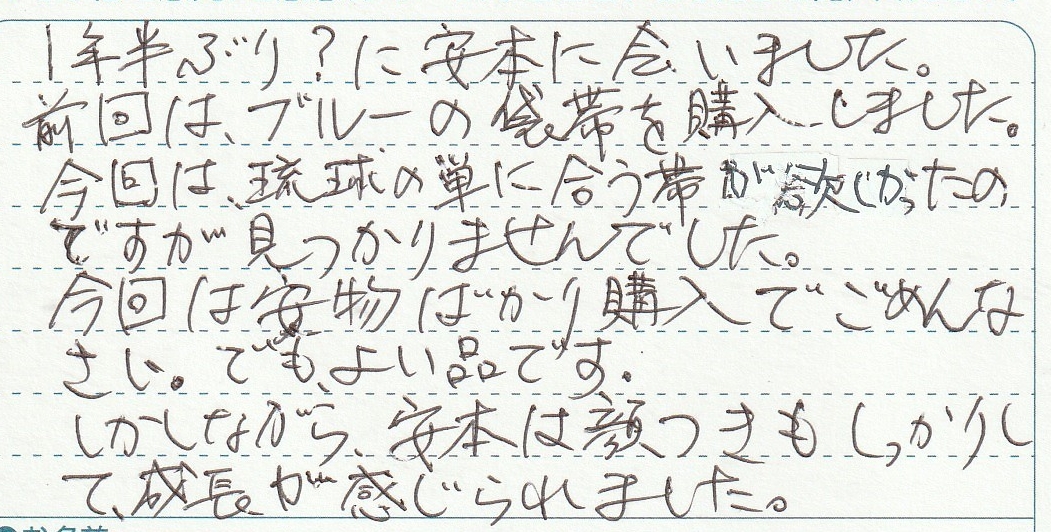 1年半ぶり？に安本に会いました。
前回は、ブルーの袋帯を購入しました。
今回は、琉球の単に合う帯が欲しかったの
ですが見つかりませんでした。
今回は安物ばかり購入でごめんな
さい。でも、よい品です。
しかしながら、安本は顔つきもしっかりし
て、成長が感じられました。